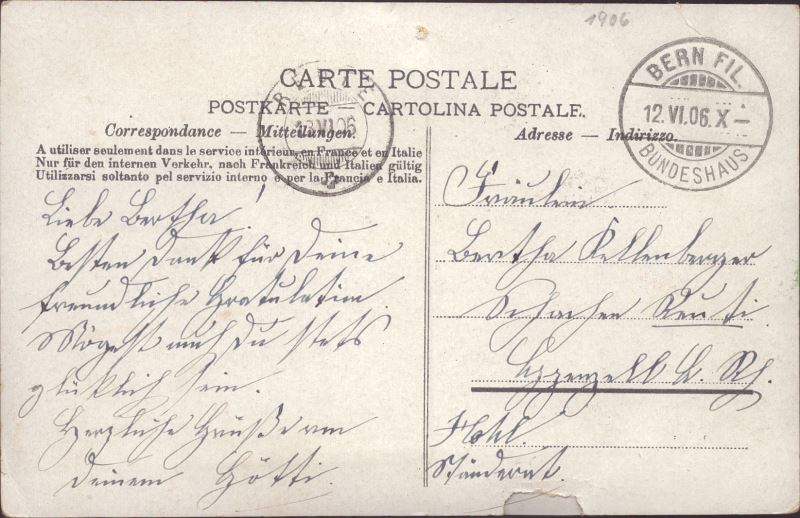 1906
CARTE POSTALE
POSTKARTE — CARTOLINA POSTALE.
Correspondance — Mitteilungen.
A utiliser seulement dans le service intérieur, en France et en Italie
Nur für den internen Verkehr, nach Frankreich und Italien gültig
Utilizzarsi soltanto pel servizio interno e per la Francia e Italia.
VI.06
Liebe Bertha!
Besten Dank für Deine
freundliche Gratulation.
Mögest auch Du stets
glücklich sein.
Herzliche Grüße von
Deinem Götti.
BERN FIL.
12.VI.06. X —
BUNDESHAUS
Adresse — Indirizzo.
Fräulein
Bertha Kellenberger
Schachen Reuti
Appenzell A. Rh.
Ständerat.